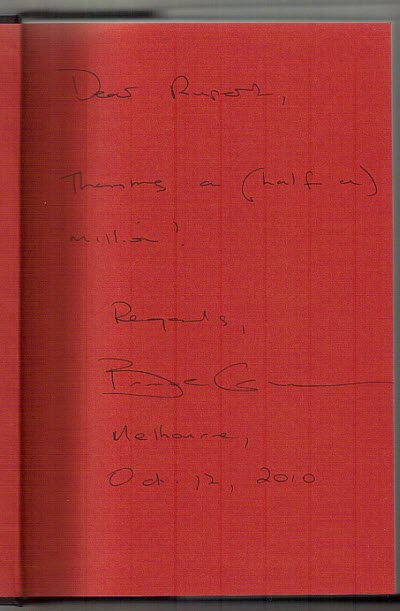 Dear Rupert,
Thanks a (half a)
million!
Regards,
Melbourne,
Oct. 12, 2010